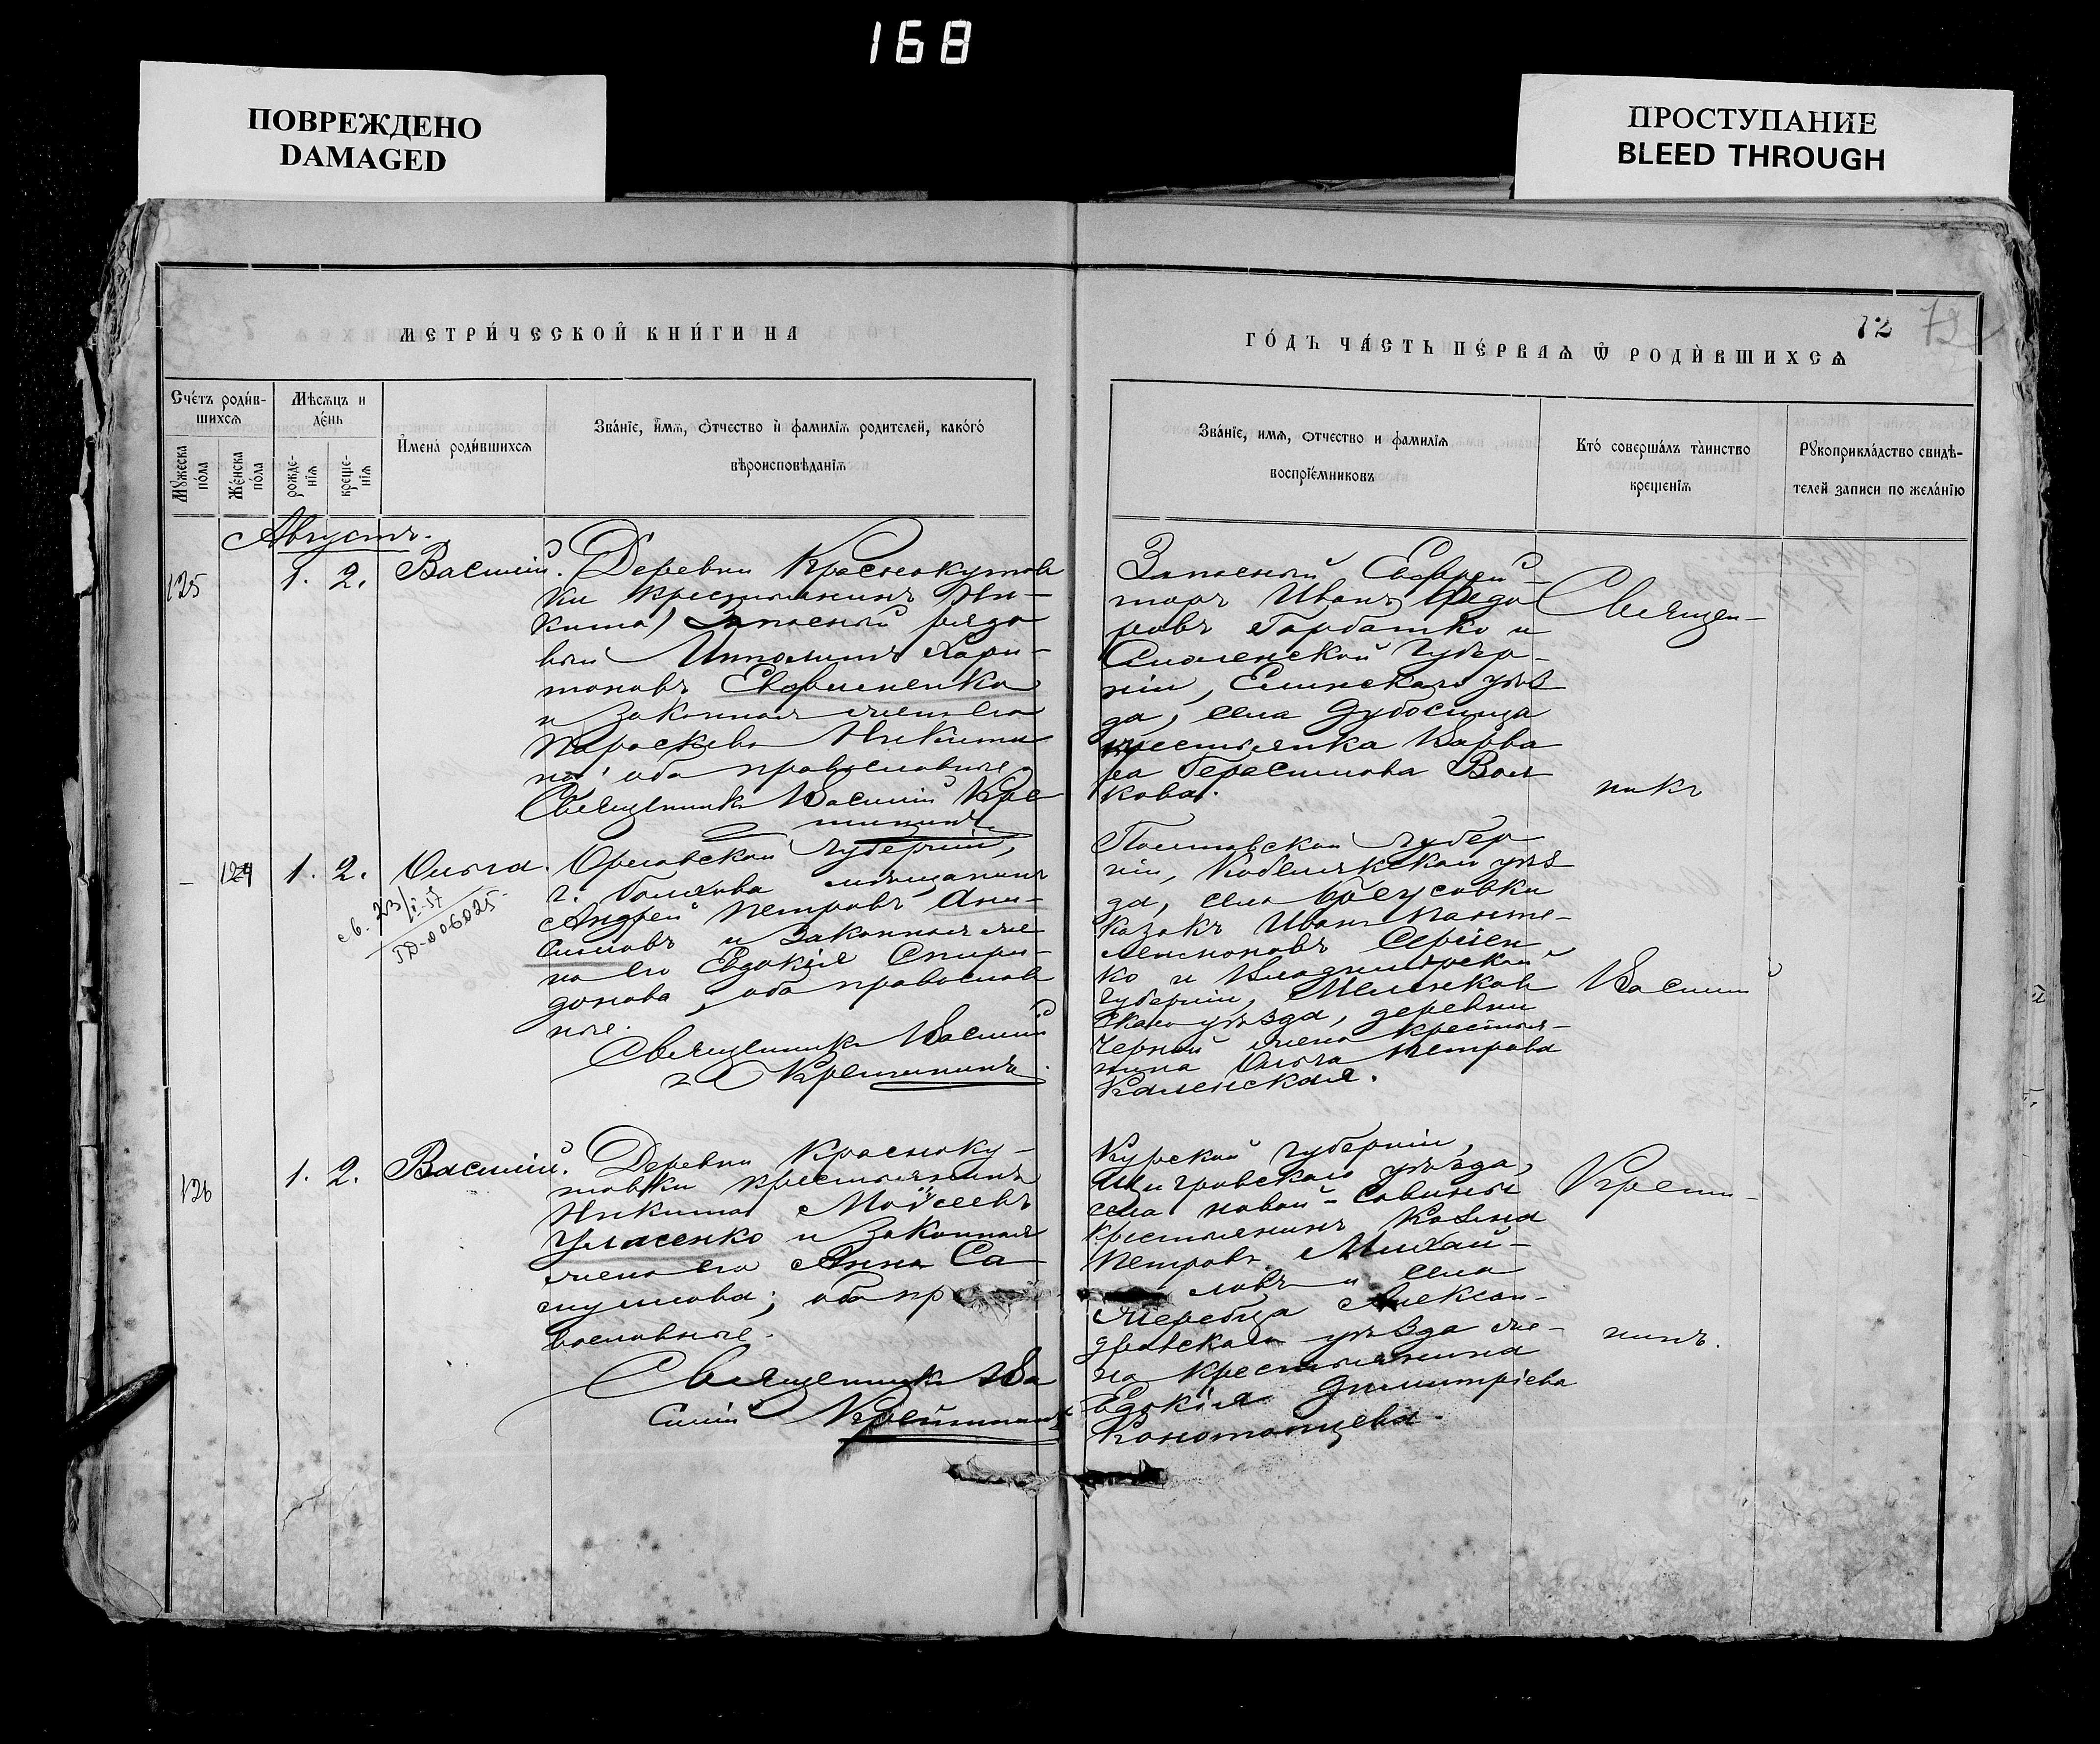 168
ПОВРЕЖДЕНО
DAMAGED
ПРОСТУПАНИЕ
BLEED THROUGH
МЕТРИ́ЧЕСКОЙ КНИ́ГИ НА
ГО́ДЪ ЧА́СТЬ ПЕ́РВАѦ Ѿ РОДИ́ВШИХСѦ
72
72
Сче́тъ роди́в-
шихсѧ
Мѣсѧцъ и
де́нь
Имена̀ роди́вшихсѧ
Зва́нїе, и҆́мѧ, ѻ҆́тчество и҆ фамилїѧ родителей, како́гѡ
вѣроисповѣданїѧ
Мꙋжеска
по́ла
Же́нска
по́ла
рожде-
нїѧ
креще-
нїѧ
Зва́нїе, имѧ, ѻтчество и фамилїѧ
воспрїе́мниковъ
Кто́ соверша́лъ та̀инство
крещенїѧ
Рꙋкоприкла́дство свидѣ-
телей записи по жела́нїю
Августъ.
125
1. 2.
Василій.
Деревни Краснокутов
ки крестьянинъ (Ни-
кита) Запасный рядо
вый Ипполитъ Хари-
тоновъ Евфименко
и законная жена его
Параскева Никити
на; оба православные.
Священникъ Василій Кре
шининъ
Запасный Ефрей-
торъ Иванъ Ѳедо
ровъ Горбатко и
Смоленской губер-
ніи, Елинскаго уѣз
да, села Дубосища
крестьянка Варва
ра Герасимова Вол
кова.
Священ-
никъ
– 124
1. 2.
Ольга.
св. 23/IX-57
ГД-006025
Орловской губерніи,
г. Болхова мѣщанинъ
Андрей Петровъ Ани-
симовъ и законная же
на его Евдокія Спири-
донова, оба православ
ные.
Священникъ Василій
Крешининъ.
Полтавской губер
ніи, Кобелякскаго уѣз
да, села Бреусовки
казакъ Иванъ Панте-
леимоновъ Сергіен
ко и Владимірской
губерніи, Меленков
скаго уѣзда, деревни
Черной жена крестья-
нина Ольга Петрова
Каменская.
Василій
126
1. 2.
Василій.
Деревни Красноку-
товки крестьянинъ
Никита Моѵсеевъ
Уласенко и законная
жена его Анна Са-
муилова; оба пра
вославные.
Священникъ Ва
силій Крешининъ
Курской губерніи,
Щигровскаго уѣзда,
села Новой-Савины
крестьянинъ Козьма
Петровъ Михай-
ловъ и села
Жеребца Алексан-
дровскаго уѣзда же-
на крестьянина
Евдокія Димитріева
Конотопцева.
Креши-
нинъ.